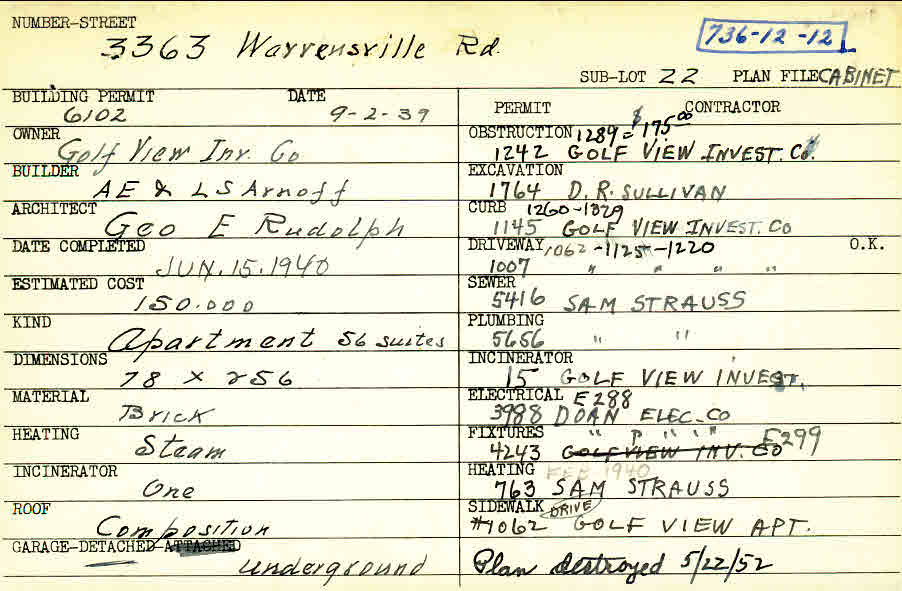 NUMBER-STREET
3363 Warrensville Rd.
736-12-12
SUB-LOT 22 PLAN FILE CABINET
BUILDING PERMIT DATE
6102 9-2-39
OWNER
Golf View Inv. Co
BUILDER
AE & LS Arnoff
ARCHITECT
Geo E Rudolph
DATE COMPLETED
JUN. 15. 1940
ESTIMATED COST
150.000
KIND
Apartment 56 suites
DIMENSIONS
78 x 256
MATERIAL
Brick
HEATING
Steam
INCINERATOR
One
ROOF
Composition
GARAGE-DETACHED-ATTACHED
underground
PERMIT CONTRACTOR
OBSTRUCTION 1289 = $175.00
1242 GOLF VIEW INVEST. Co.
EXCAVATION
1764 D.R. SULLIVAN
CURB 1260-1329
1145 GOLF VIEW INVEST. Co
DRIVEWAY 1062-1125-1220 O.K.
1007 " " " "
SEWER
5416 SAM STRAUSS
PLUMBING
5656 " "
INCINERATOR
15 GOLF VIEW INVEST.
ELECTRICAL E288
3988 DOAN ELEC. CO
FIXTURES " " " " E299
4243 GOLF VIEW INV. CO
HEATING FEB 1940
763 SAM STRAUSS
SIDEWALK DRIVE
#7062 GOLF VIEW APT.
Plan destroyed 5/22/52